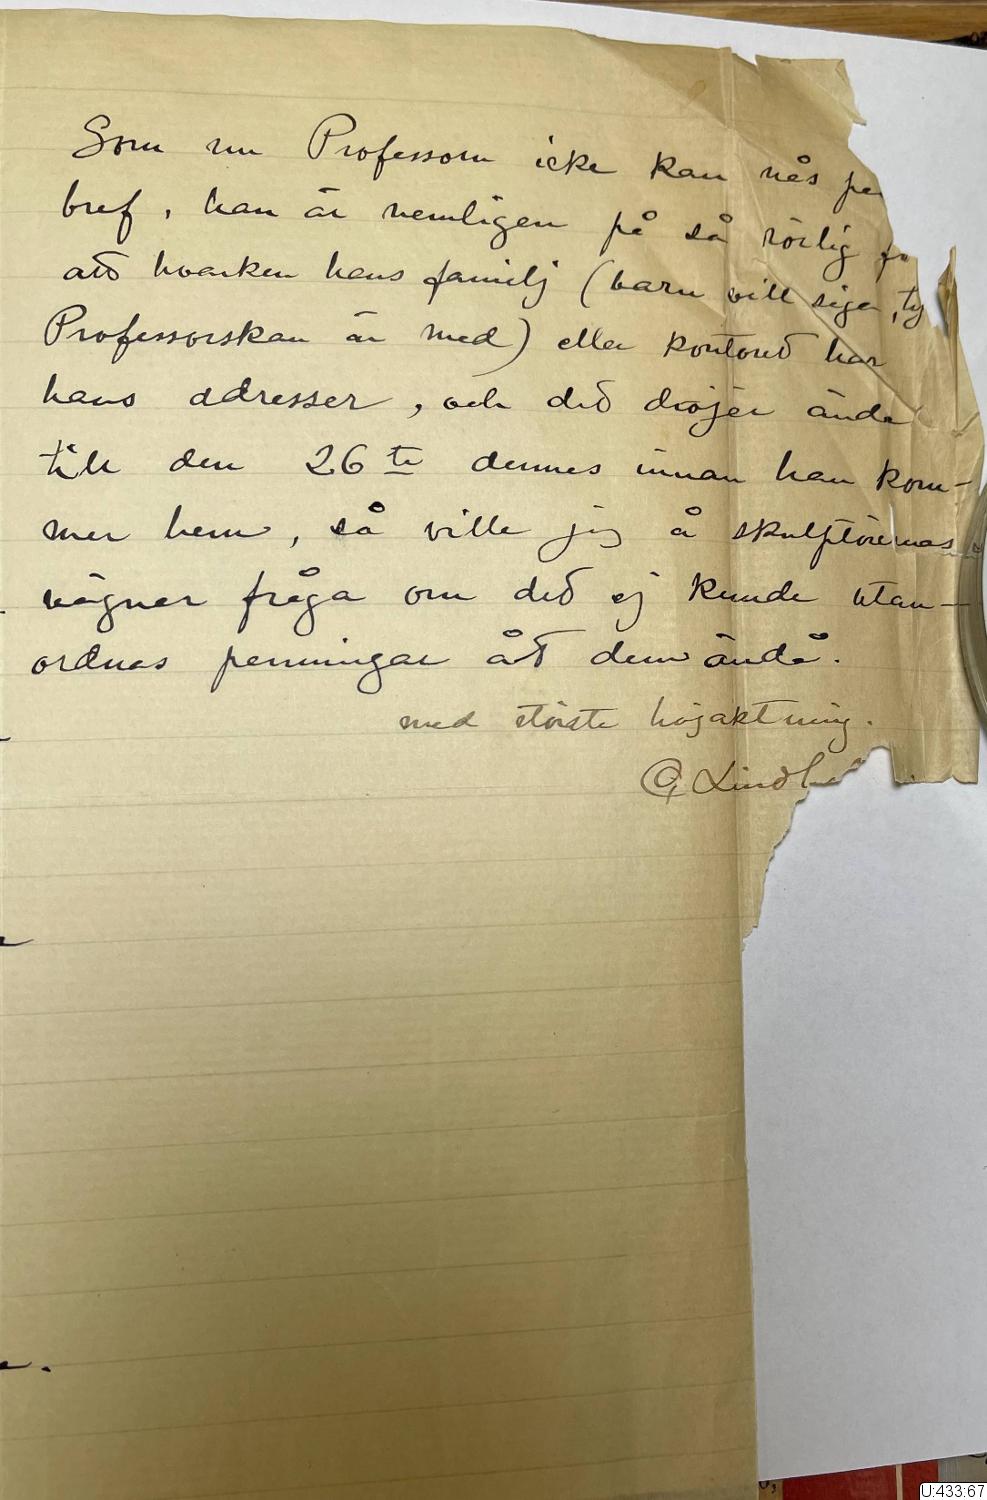 Som nu Professorn icke kan nås pe
bref, han är nemligen på så rörlig fo
att hvarken hans familj (barn vill säga, ty
Professorskan är med) eller kontoret har
hans adresser, och det dröjer ända
till den 26te dennes innan han kom-
mer hem, så ville jag å skulptörernas
vägnar fråga om det ej kunde utan-
ordnas penningar åt dem ändå.
med största högaktning.
G Lindh
U:433:67